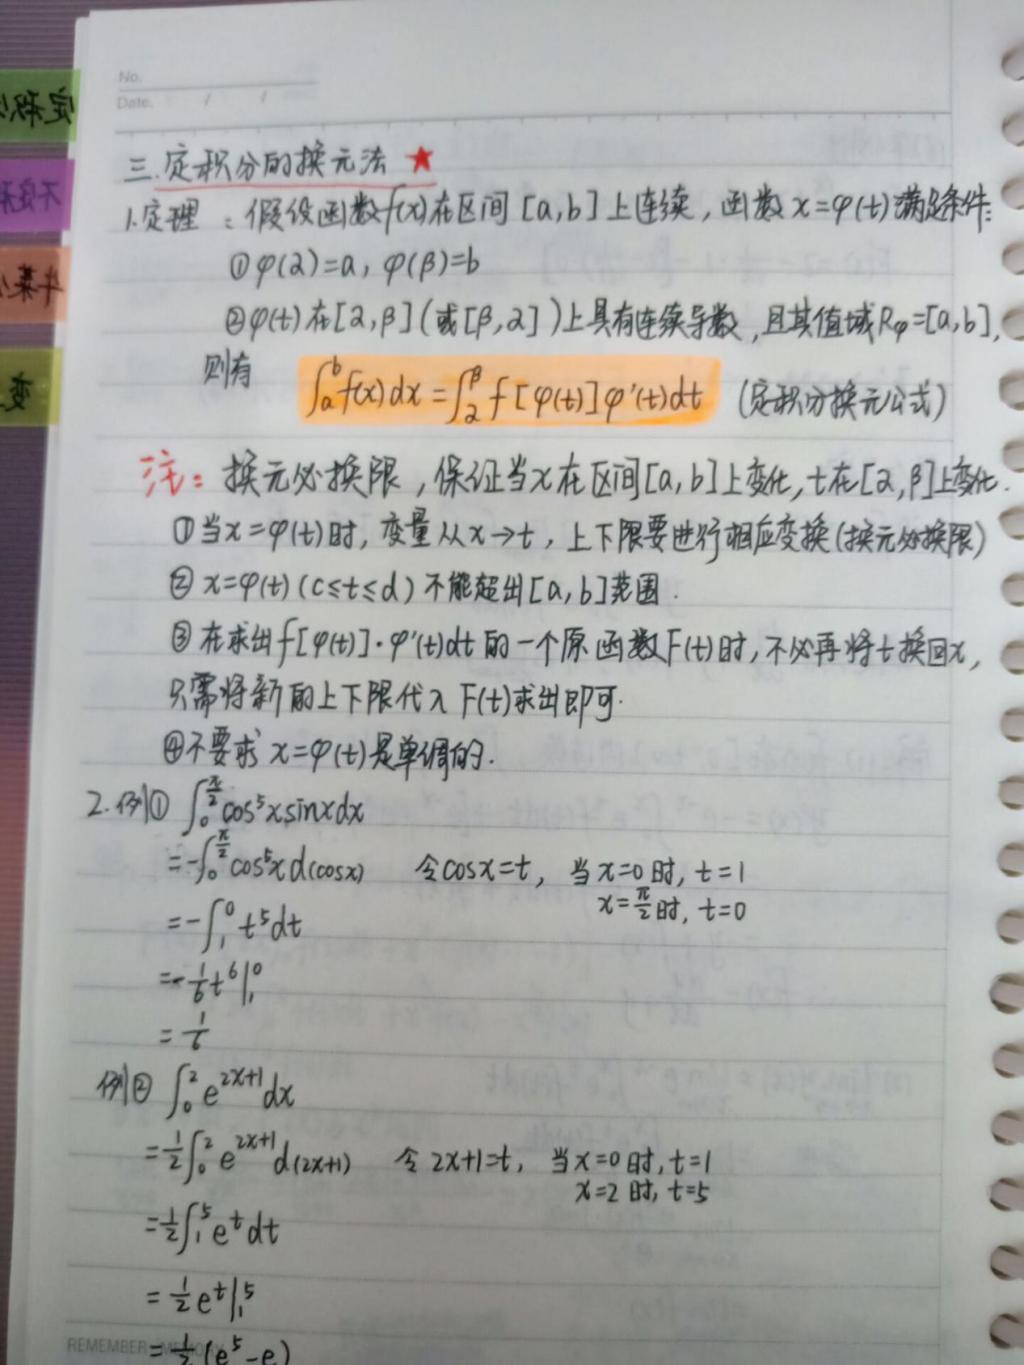 No.
Date.
三.定积分的换元法 ★
1.定理：假设函数f(x)在区间[a,b]上连续，函数x=φ(t)满足条件：
①φ(α)=a, φ(β)=b
②φ(t)在[α,β](或[β,α])上具有连续导数,且其值域Rφ=[a,b],
则有 ∫ₐᵇf(x)dx=∫_α^β f[φ(t)]φ'(t)dt (定积分换元公式)
注：换元必换限,保证当x在区间[a,b]上变化,t在[α,β]上变化.
①当x=φ(t)时,变量从x→t,上下限要进行相应变换(换元必换限)
②x=φ(t)(c≤t≤d)不能超出[a,b]范围.
③在求出f[φ(t)]·φ'(t)dt的一个原函数F(t)时,不必再将t换回x,
只需将新的上下限代入F(t)求出即可.
④不要求x=φ(t)是单调的.
2.例① ∫₀^(π/2) cos⁵xsinxdx
=-∫₀^(π/2) cos⁵xd(cosx) 令cosx=t, 当x=0时,t=1
x=π/2时,t=0
=-∫₁⁰ t⁵dt
=-1/6 t⁶|₁⁰
=1/6
例② ∫₀² e^(2x+1)dx
=1/2∫₀² e^(2x+1)d(2x+1) 令2x+1=t, 当x=0时,t=1
x=2时,t=5
=1/2∫₁⁵ e^t dt
=1/2 e^t|₁⁵
=1/2(e⁵-e)
REMEMBER